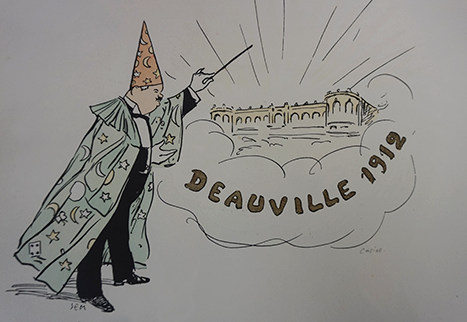 DEAUVILLE 1912
SEM